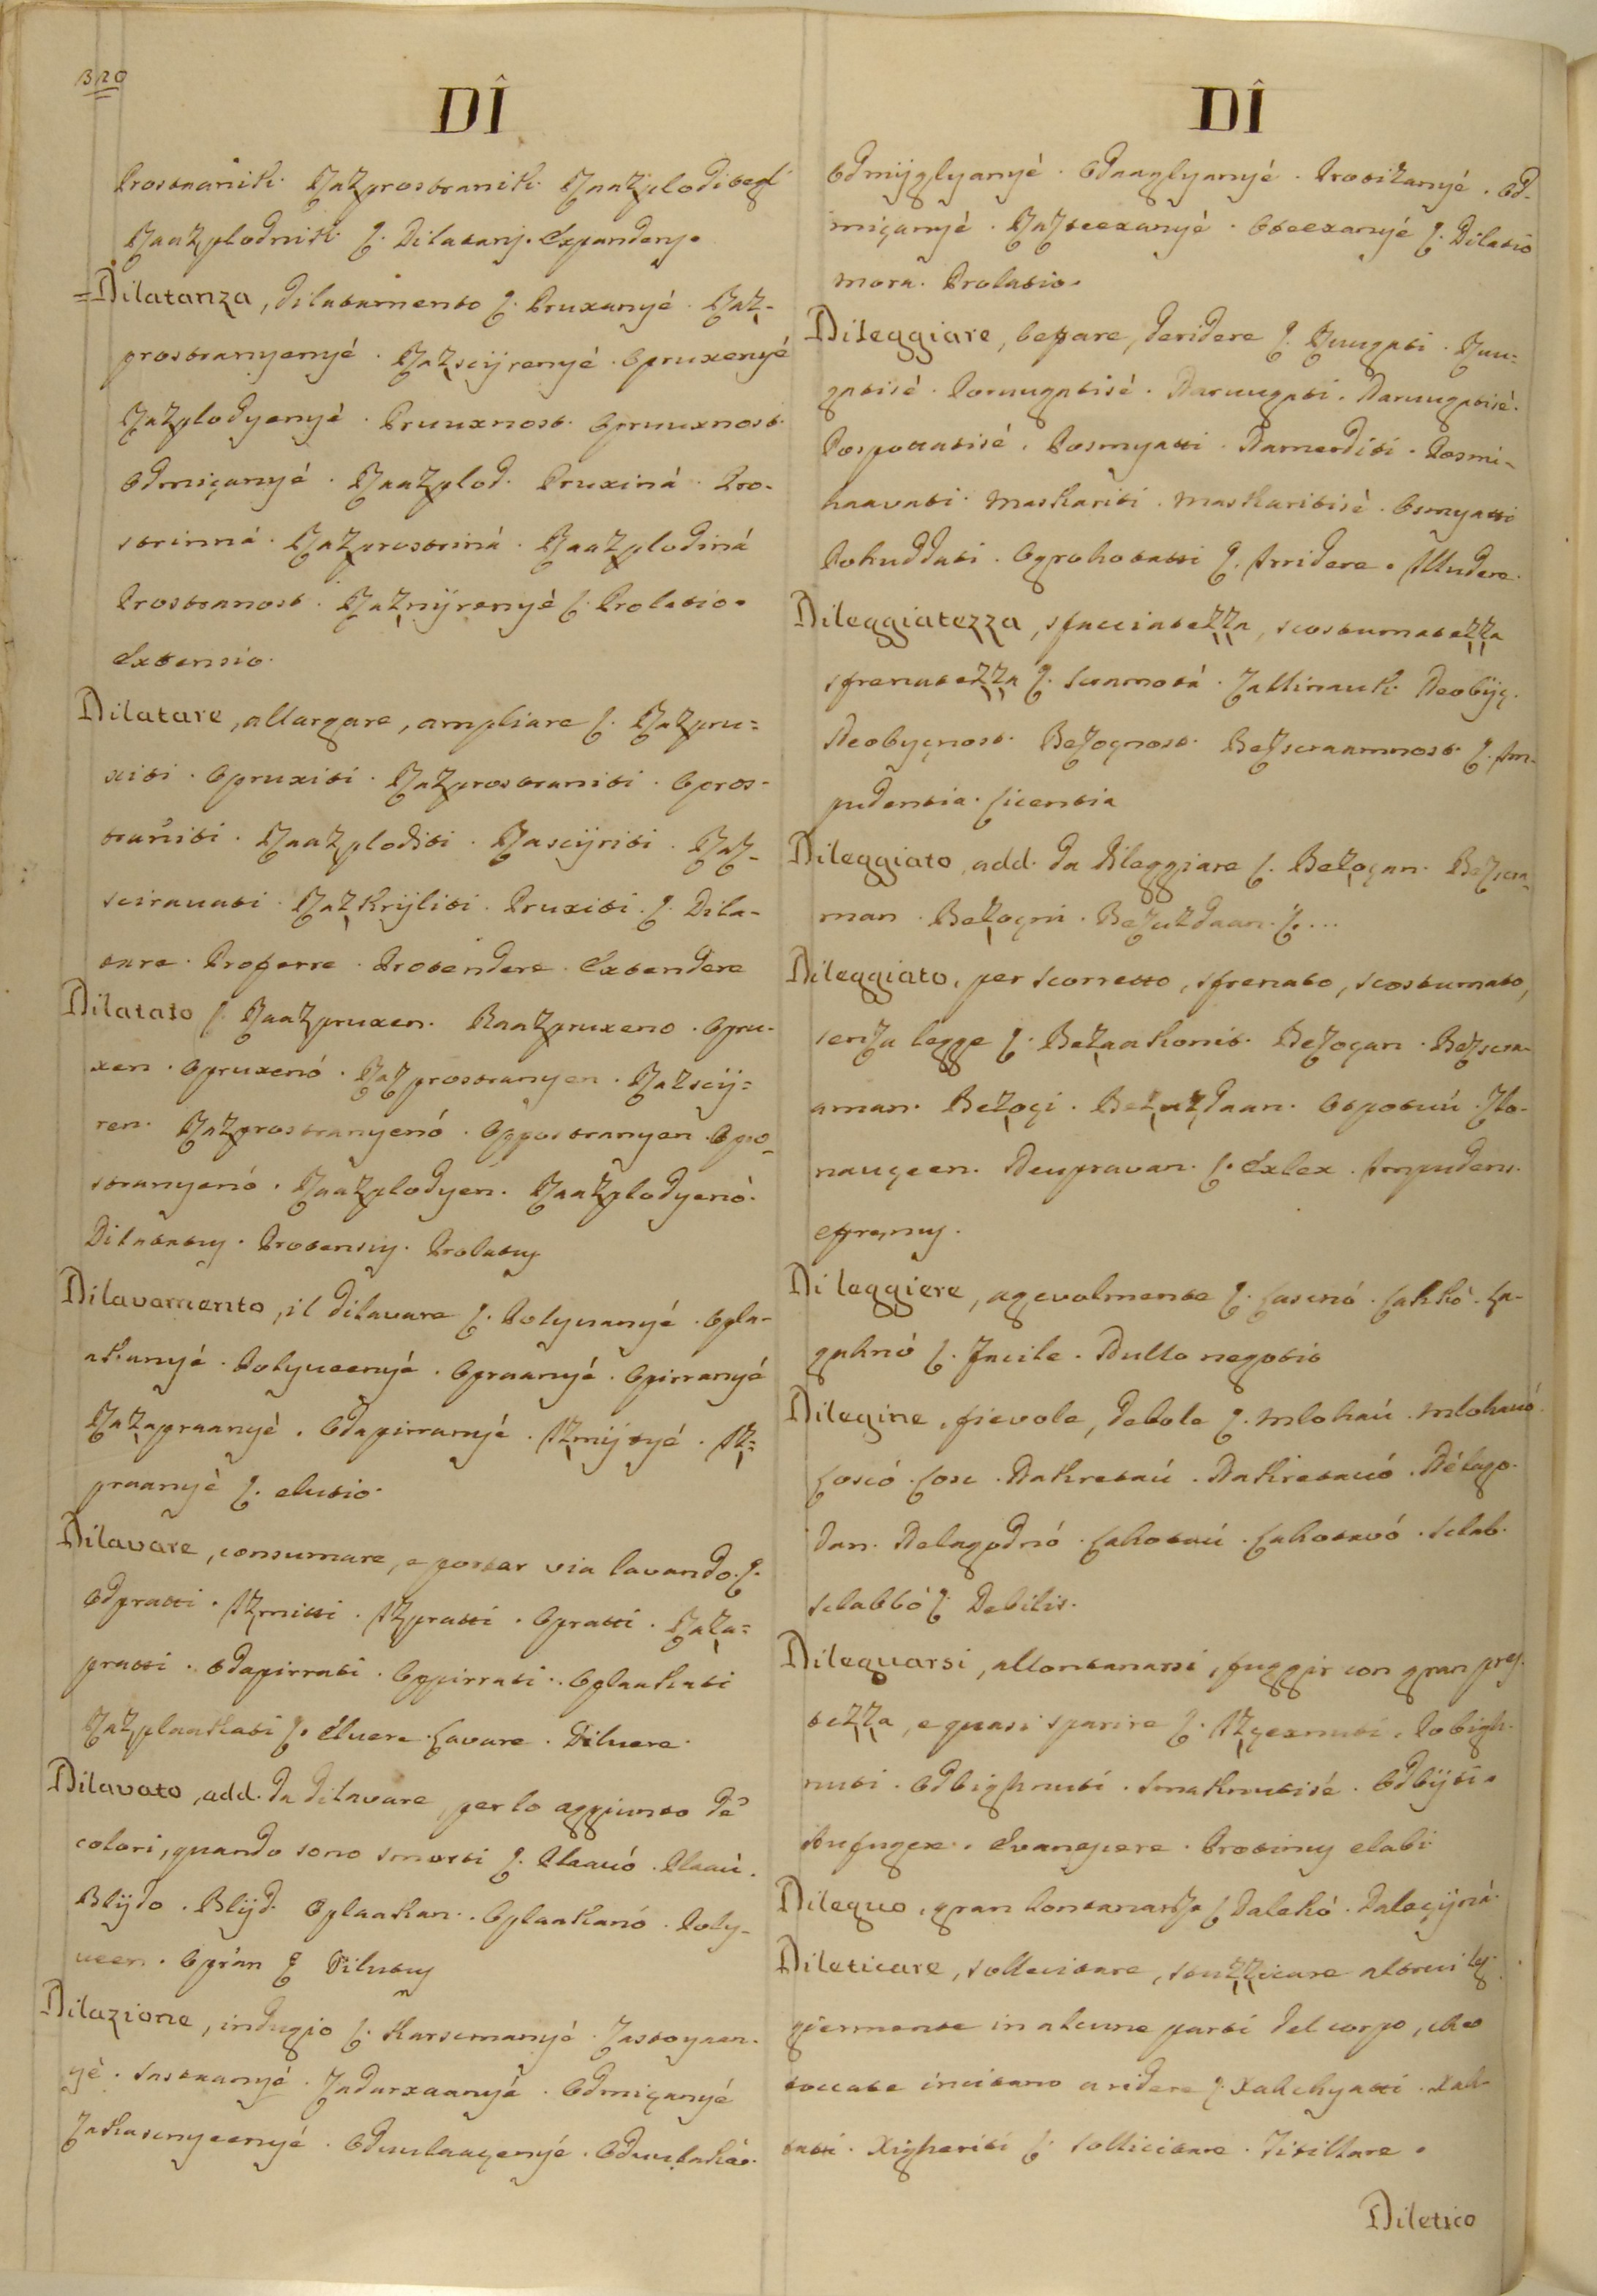 320
DÎ
Prostraniti. Razprostraniti. Raazploditegl
Raazplodniti. ſ. Dilatans. Expandens.
=Dilatanza, dilatamento ſ. Pruxanyé. Raz-
prostranyenyé. Razscijrenyé. Opruxenyé
Razplodyenyé. Pruuxnost. Opruuxnost.
Odmiçanyé. Raazplod. Pruxiná. Pro-
strinná. Razprostriná. Raazplodiná
Prostranost. Raznijrenyé ſ. Prolatio.
Extensio.
Dilatare, allargare, ampliare ſ. Razpru=
xiti. Opruxiti. Razprostraniti. Opros-
traniti. Raazploditi. Rascijriti. Raz-
scirauati. Razkrijliti. Pruxiti. ſ. Dila-
tare. Proferre. Protendere. Extendere
Dilatato ſ. Raazpruxen. Raazpruxeno. Opru-
xen. Opruxenó. Razprostranyen. Razscij=
ren. Razprostranyenó. Oprostranyen. Opro-
stranyenó. Raazplodyen. Raazplodyenó.
Dilatatus. Protensus. Prolatus
Dilavamento, il dilavare ſ. Polyuanyé. Opla-
akanyé. Polyueenyé. Opraanyé. Opirranyé
Razapraanyé. Odapirranyé. Izmijtyé. Iz=
praanyé ſ. elutio.
Dilavare, consumare, e portar via lavando. ſ.
Odpratti. Izmitti. Izpratti. Opratti. Raza=
pratti. Odapirrati. Oppirrati. Oplaakati
Razplaakati ſ. Eluere. Lavare. Diluere.
Dilavato, add. da dilavare, per lo aggiunto de'
colori, quando sono smorti ſ. Plaauó. Plaaú.
Blijdo. Blijd. Oplaakan. Oplaakanó. Poly-
ueen. Oprán ſ. Dilutus
Dilazione, indugio ſ. Karsmanyé. Zastoyaan-
yé. Sastaanyé. Zadarxaanyé. Odmiçanyé
Zakasnyeenyé. Oduulaaçenyé. Oduulakáo.
DÎ
Odmijglyanyé. Odaaglyanyé. Protizanyé. Od-
miçanyé. Razteexanyé. Oteexanyé ſ. Dilatio
mora. Prolatio.
Dileggiare, beffare, deridere ſ. Ruugati. Ruu=
gatisé. Poruugatisé. Naruugati. Naruugatisé.
Pospottatisé. Posmyatti. Namerditi. Posmi-
haavati. Maskariti. Maskaritisé. Osmyatti
Pohuddati. Ogrohotatti ſ. Irridere. Illudere.
Dileggiatezza, sfacciatezza, scostumatezza
sfrenatezza ſ. Sramotá. Zallinauk. Neobijç.
Neobyçnost. Bezoçnost. Bezscraamnost. ſ. Im-
pudentia. Licentia
Dileggiato, add. da Dileggiare ſ. Bezoçan. Bezscra-
man. Bezoçni. Bezuzdaan. ſ...
Dileggiato, per scorretto, sfrenato, scostumato,
senza legge ſ. Bezaakonit. Bezoçan. Bezscra-
aman. Bezoçi. Bezuzdaan. Otpotuú. Zlo-
nauçeen. Neupravan. ſ. Exlex. Impudens.
effrenus.
Di leggiere, agevolmente ſ. Lascnó. Lakkó. La-
gahnó ſ. Facile. Nullo negotio
Dilegine, fievole, debole ſ. Mlohaú. Mlohauó.
Loscó. Losc. Nakretaú. Nakretauó. Nélago-
dan. Nelagodnó. Lahotaú. Lahotavó. Slab.
Slabbó ſ. Debilis.
Dileguarsi, allontanarsi, fuggir con gran pres-
tezza, e quasi sparire ſ. Izçeznuti. Pobigh-
nuti. Odbighnuti. Smaknutisé. Odbijti.
Aufugere. Evanescere. Protinus elabi
Dileguo, gran lontananza ſ. Dalekó. Daleçijná.
Dileticare, sollecitare, stuzzicare altrui leg-
giermente in alcune parti del corpo, che
toccate incitano a ridere ſ. Xakehyatti. Xak-
tati. Xighariti ſ. Sollicitare. Titillare.
Diletico